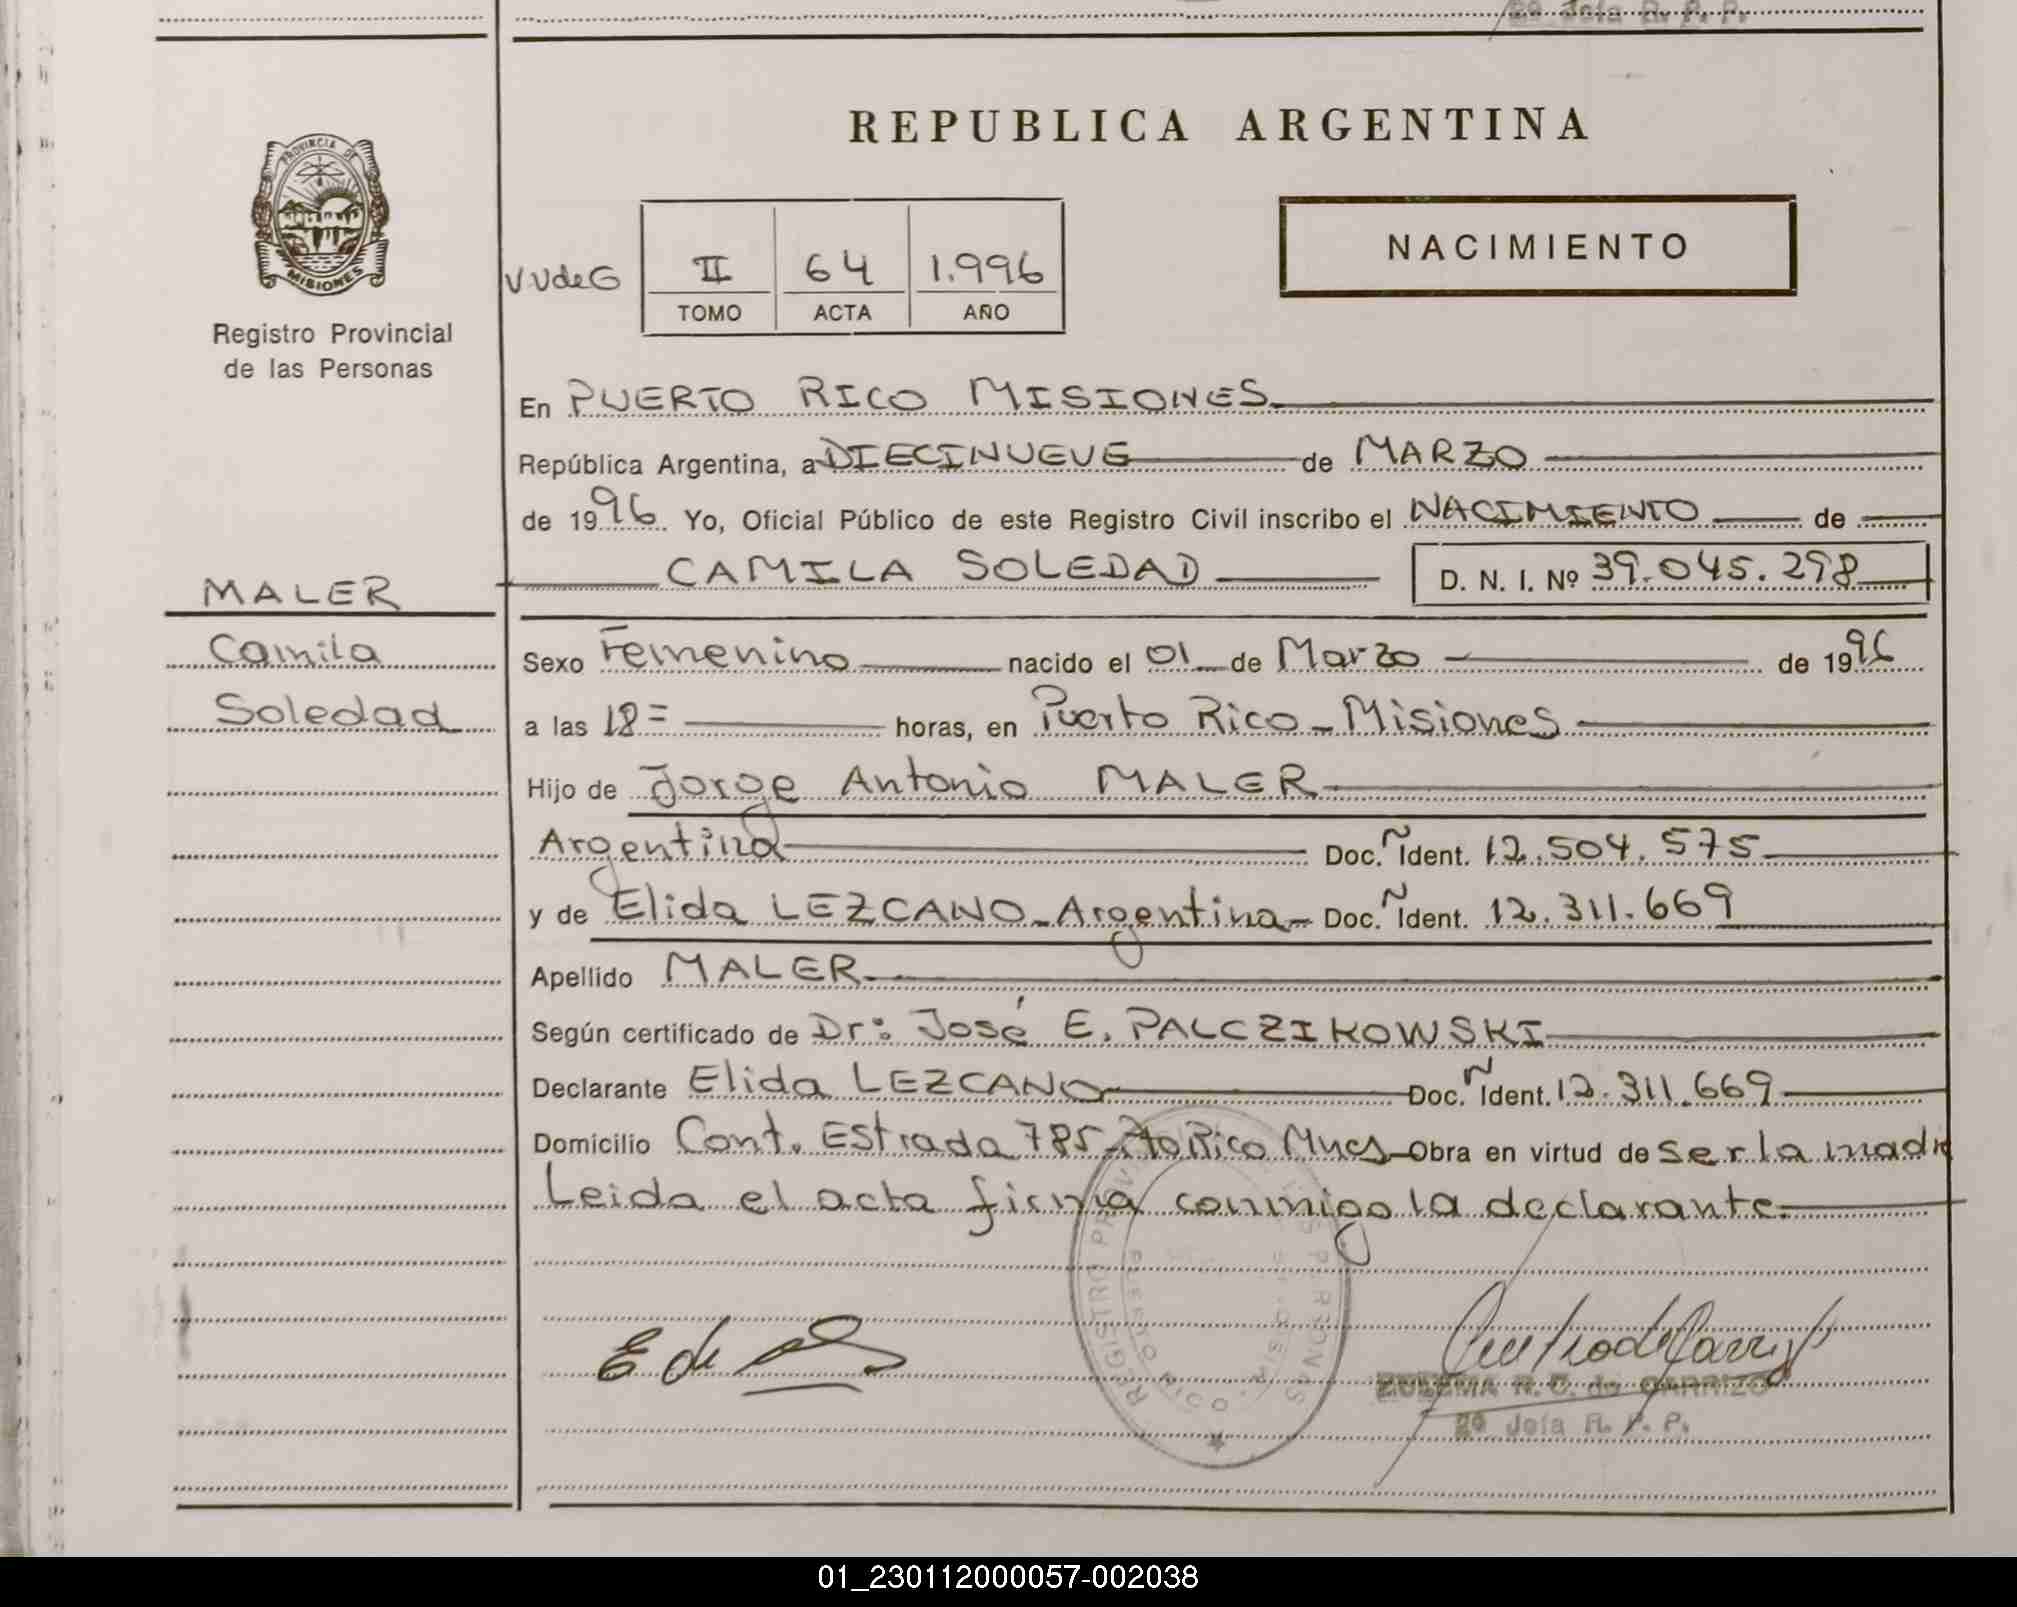 2º Jefa R. P. P.
REPUBLICA ARGENTINA
PROVINCIA DE
MISIONES
NACIMIENTO
VVdeG II 64 1.996
TOMO ACTA AÑO
Registro Provincial
de las Personas
En PUERTO RICO MISIONES
República Argentina, a DIECINUEVE de MARZO
de 1996 Yo, Oficial Público de este Registro Civil inscribo el NACIMIENTO de
CAMILA SOLEDAD D. N. I. Nº 39.045.298
MALER
Camila
Soledad
Sexo Femenino nacido el 01 de Marzo de 1996
a las 18= horas, en Puerto Rico - Misiones
Hijo de Jorge Antonio MALER
Argentina Doc. Ident. 12.504.575
y de Elida LEZCANO - Argentina - Doc. Ident. 12.311.669
Apellido MALER
Según certificado de Dr: José E. PALCZIKOWSKI
Declarante Elida LEZCANO Doc. Ident. 12.311.669
Domicilio Cont. Estrada 785 - Pto Rico Mnes - Obra en virtud de ser la madre
Leida el acta firma conmigo la declarante.
REGISTRO PROVINCIAL DE LAS PERSONAS
PUERTO RICO
E de
ZULEMA R. C. de CARRIZO
2º Jefa R. P. P.
01_230112000057-002038